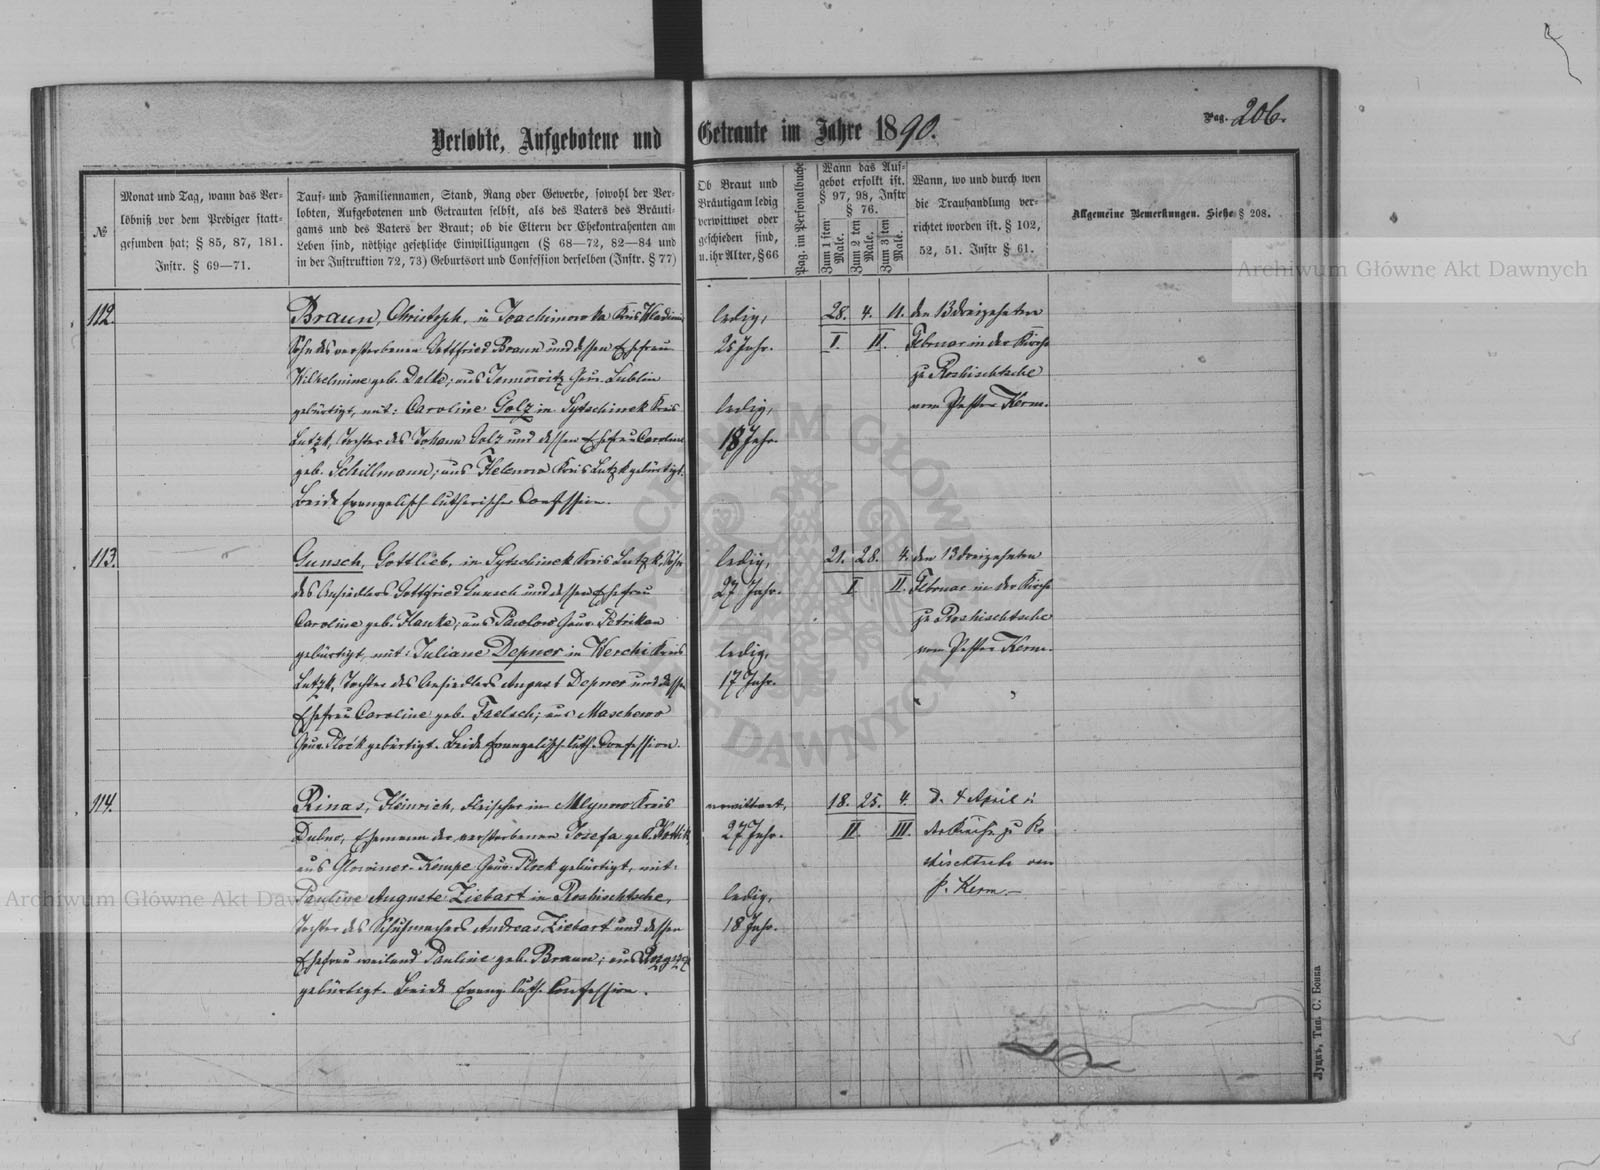 Pag. 206.
Verlobte, Aufgebotene und Getraute im Jahre 1890.
№
Monat und Tag, wann das Ver-
löbniß vor dem Prediger statt-
gefunden hat; § 85, 87, 181.
Instr. § 69—71.
Tauf- und Familiennamen, Stand, Rang oder Gewerbe, sowohl der Ver-
lobten, Aufgebotenen und Getrauten selbst, als des Vaters des Bräuti-
gams und des Vaters der Braut; ob die Eltern der Ehekontrahenten am
Leben sind, nöthige gesetzliche Einwilligungen (§ 68—72, 82—84 und
in der Instruktion 72, 73) Geburtsort und Confession derselben (Instr. § 77)
Ob Braut und
Bräutigam ledig
verwittwet oder
geschieden sind,
u. ihr Alter, § 66
Pag. im Personalbuche
Wann das Auf-
gebot erfolkt ist.
§ 97, 98, Instr
§ 76.
Zum 1sten Male.
Zum 2ten Male.
Zum 3ten Male.
Wann, wo und durch wen
die Trauhandlung ver-
richtet worden ist. § 102,
52, 51. Instr § 61.
Allgemeine Bemerkungen. Siehe § 208.
112.
Braun, Christoph, in Joachimowka Kreis Wladimir
Sohn des verstorbenen Gottfried Braun und dessen Ehefrau
Wilhelmine geb. Dalke; aus Gouv. Lublin
gebürtig, mit: Caroline Golz in Sytschinek Kreis
Lutzk, Tochter des Johann Golz und dessen Ehefrau Caroline
geb. Schillmann; aus Helenow Kreis Lutzk gebürtig.
Beide Evangelisch lutherischer Confession.
ledig,
25 Jahr.
ledig,
18 Jahr.
28. 4. 11.
I. II.
den 13 dreizehnten
Februar in der Kirche
zu Roshischtsche
vom Pastor Kerm.
113.
Gunsch, Gottlieb, in Sytschinek Kreis Lutzk, Sohn
des Ansiedlers Gottfried Gunsch und dessen Ehefrau
Caroline geb. Hanke; aus Pawlow Gouv. Petrikau
gebürtig, mit: Juliane Depner in Werchi Kreis
Lutzk, Tochter des Ansiedlers August Depner und dessen
Ehefrau Caroline geb. Faelsch; aus Maschewo
Gouv. Plock gebürtigt. Beide Evangelisch-luth. Confession.
ledig,
27 Jahr.
ledig,
17 Jahr.
21. 28. 4.
I II.
den 13 dreizehnten
Februar in der Kirche
zu Roshischtsche
vom Pastor Kerm.
114.
Rinas, Heinrich, Fleischer in Mlynow Kreis
Dubno, Ehemann der verstorbenen Josefa geb.
aus Glowiner-Kempe Gouv. Plock gebürtigt, mit:
Pauline Auguste Ziebart in Roshischtsche,
Tochter des Schuhmachers Andreas Ziebart und dessen
Ehefrau weiland Pauline geb. Braun; aus
gebürtigt. Beide Evang. luth. Confession.
verwittwet,
27 Jahr.
ledig,
18 Jahr.
18. 25. 4.
II III.
d. 4 April in
der Kirche zu Ro-
shischtsche von
P. Kerm.
Луцкъ, Тип. С. Бонка
Archiwum Główne Akt Dawnych
Archiwum Główne Akt Dawnych
ARCHIWUM GŁÓWNE AKT DAWNYCH